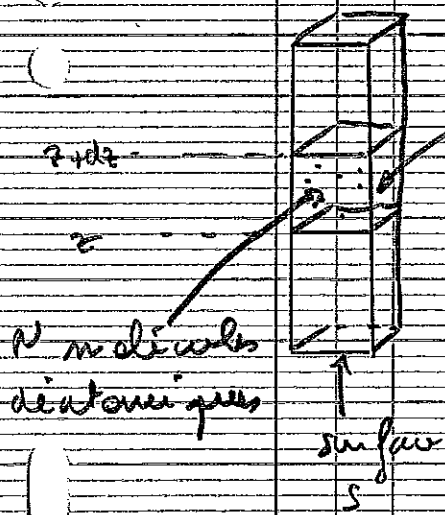 z+dz
z
N molécules
diatomiques
surface
S